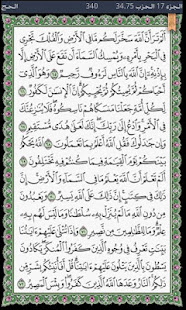 الجزء 17 الحزب 34.75 340 الحج
أَلَمْ تَرَ أَنَّ ٱللَّهَ سَخَّرَ لَكُم مَّا فِي ٱلْأَرْضِ وَٱلْفُلْكَ تَجْرِي فِي
ٱلْبَحْرِ بِأَمْرِهِۦ وَيُمْسِكُ ٱلسَّمَآءَ أَن تَقَعَ عَلَى ٱلْأَرْضِ إِلَّا
بِإِذْنِهِۦٓ إِنَّ ٱللَّهَ بِٱلنَّاسِ لَرَءُوفٌ رَّحِيمٌ ۝٦٥ وَهُوَ ٱلَّذِيٓ
أَحْيَاكُمْ ثُمَّ يُمِيتُكُمْ ثُمَّ يُحْيِيكُمْ إِنَّ ٱلْإِنسَٰنَ لَكَفُورٌ ۝٦٦
لِّكُلِّ أُمَّةٍ جَعَلْنَا مَنسَكًا هُمْ نَاسِكُوهُ فَلَا يُنَٰزِعُنَّكَ
فِي ٱلْأَمْرِ وَٱدْعُ إِلَىٰ رَبِّكَ إِنَّكَ لَعَلَىٰ هُدًى مُّسْتَقِيمٍ ۝٦٧
وَإِن جَٰدَلُوكَ فَقُلِ ٱللَّهُ أَعْلَمُ بِمَا تَعْمَلُونَ ۝٦٨ ٱللَّهُ يَحْكُمُ
بَيْنَكُمْ يَوْمَ ٱلْقِيَٰمَةِ فِيمَا كُنتُمْ فِيهِ تَخْتَلِفُونَ ۝٦٩
أَلَمْ تَعْلَمْ أَنَّ ٱللَّهَ يَعْلَمُ مَا فِي ٱلسَّمَآءِ وَٱلْأَرْضِ إِنَّ
ذَٰلِكَ فِي كِتَٰبٍ إِنَّ ذَٰلِكَ عَلَى ٱللَّهِ يَسِيرٌ ۝٧٠ وَيَعْبُدُونَ
مِن دُونِ ٱللَّهِ مَا لَمْ يُنَزِّلْ بِهِۦ سُلْطَٰنًا وَمَا لَيْسَ لَهُم بِهِۦ
عِلْمٌ وَمَا لِلظَّٰلِمِينَ مِن نَّصِيرٍ ۝٧١ وَإِذَا تُتْلَىٰ عَلَيْهِمْ ءَايَٰتُنَا
بَيِّنَٰتٍ تَعْرِفُ فِي وُجُوهِ ٱلَّذِينَ كَفَرُوا۟ ٱلْمُنكَرَ يَكَادُونَ
يَسْطُونَ بِٱلَّذِينَ يَتْلُونَ عَلَيْهِمْ ءَايَٰتِنَا قُلْ أَفَأُنَبِّئُكُم بِشَرٍّ مِّن
ذَٰلِكُمُ ٱلنَّارُ وَعَدَهَا ٱللَّهُ ٱلَّذِينَ كَفَرُوا۟ وَبِئْسَ ٱلْمَصِيرُ ۝٧٢